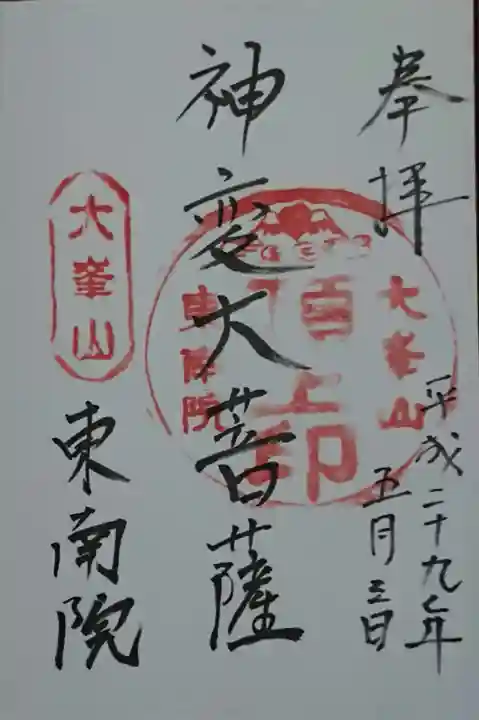 奉拝
平成二十九年
五月三日
神変大菩薩
大峯山
頂上印
東南院
大峯山
東南院